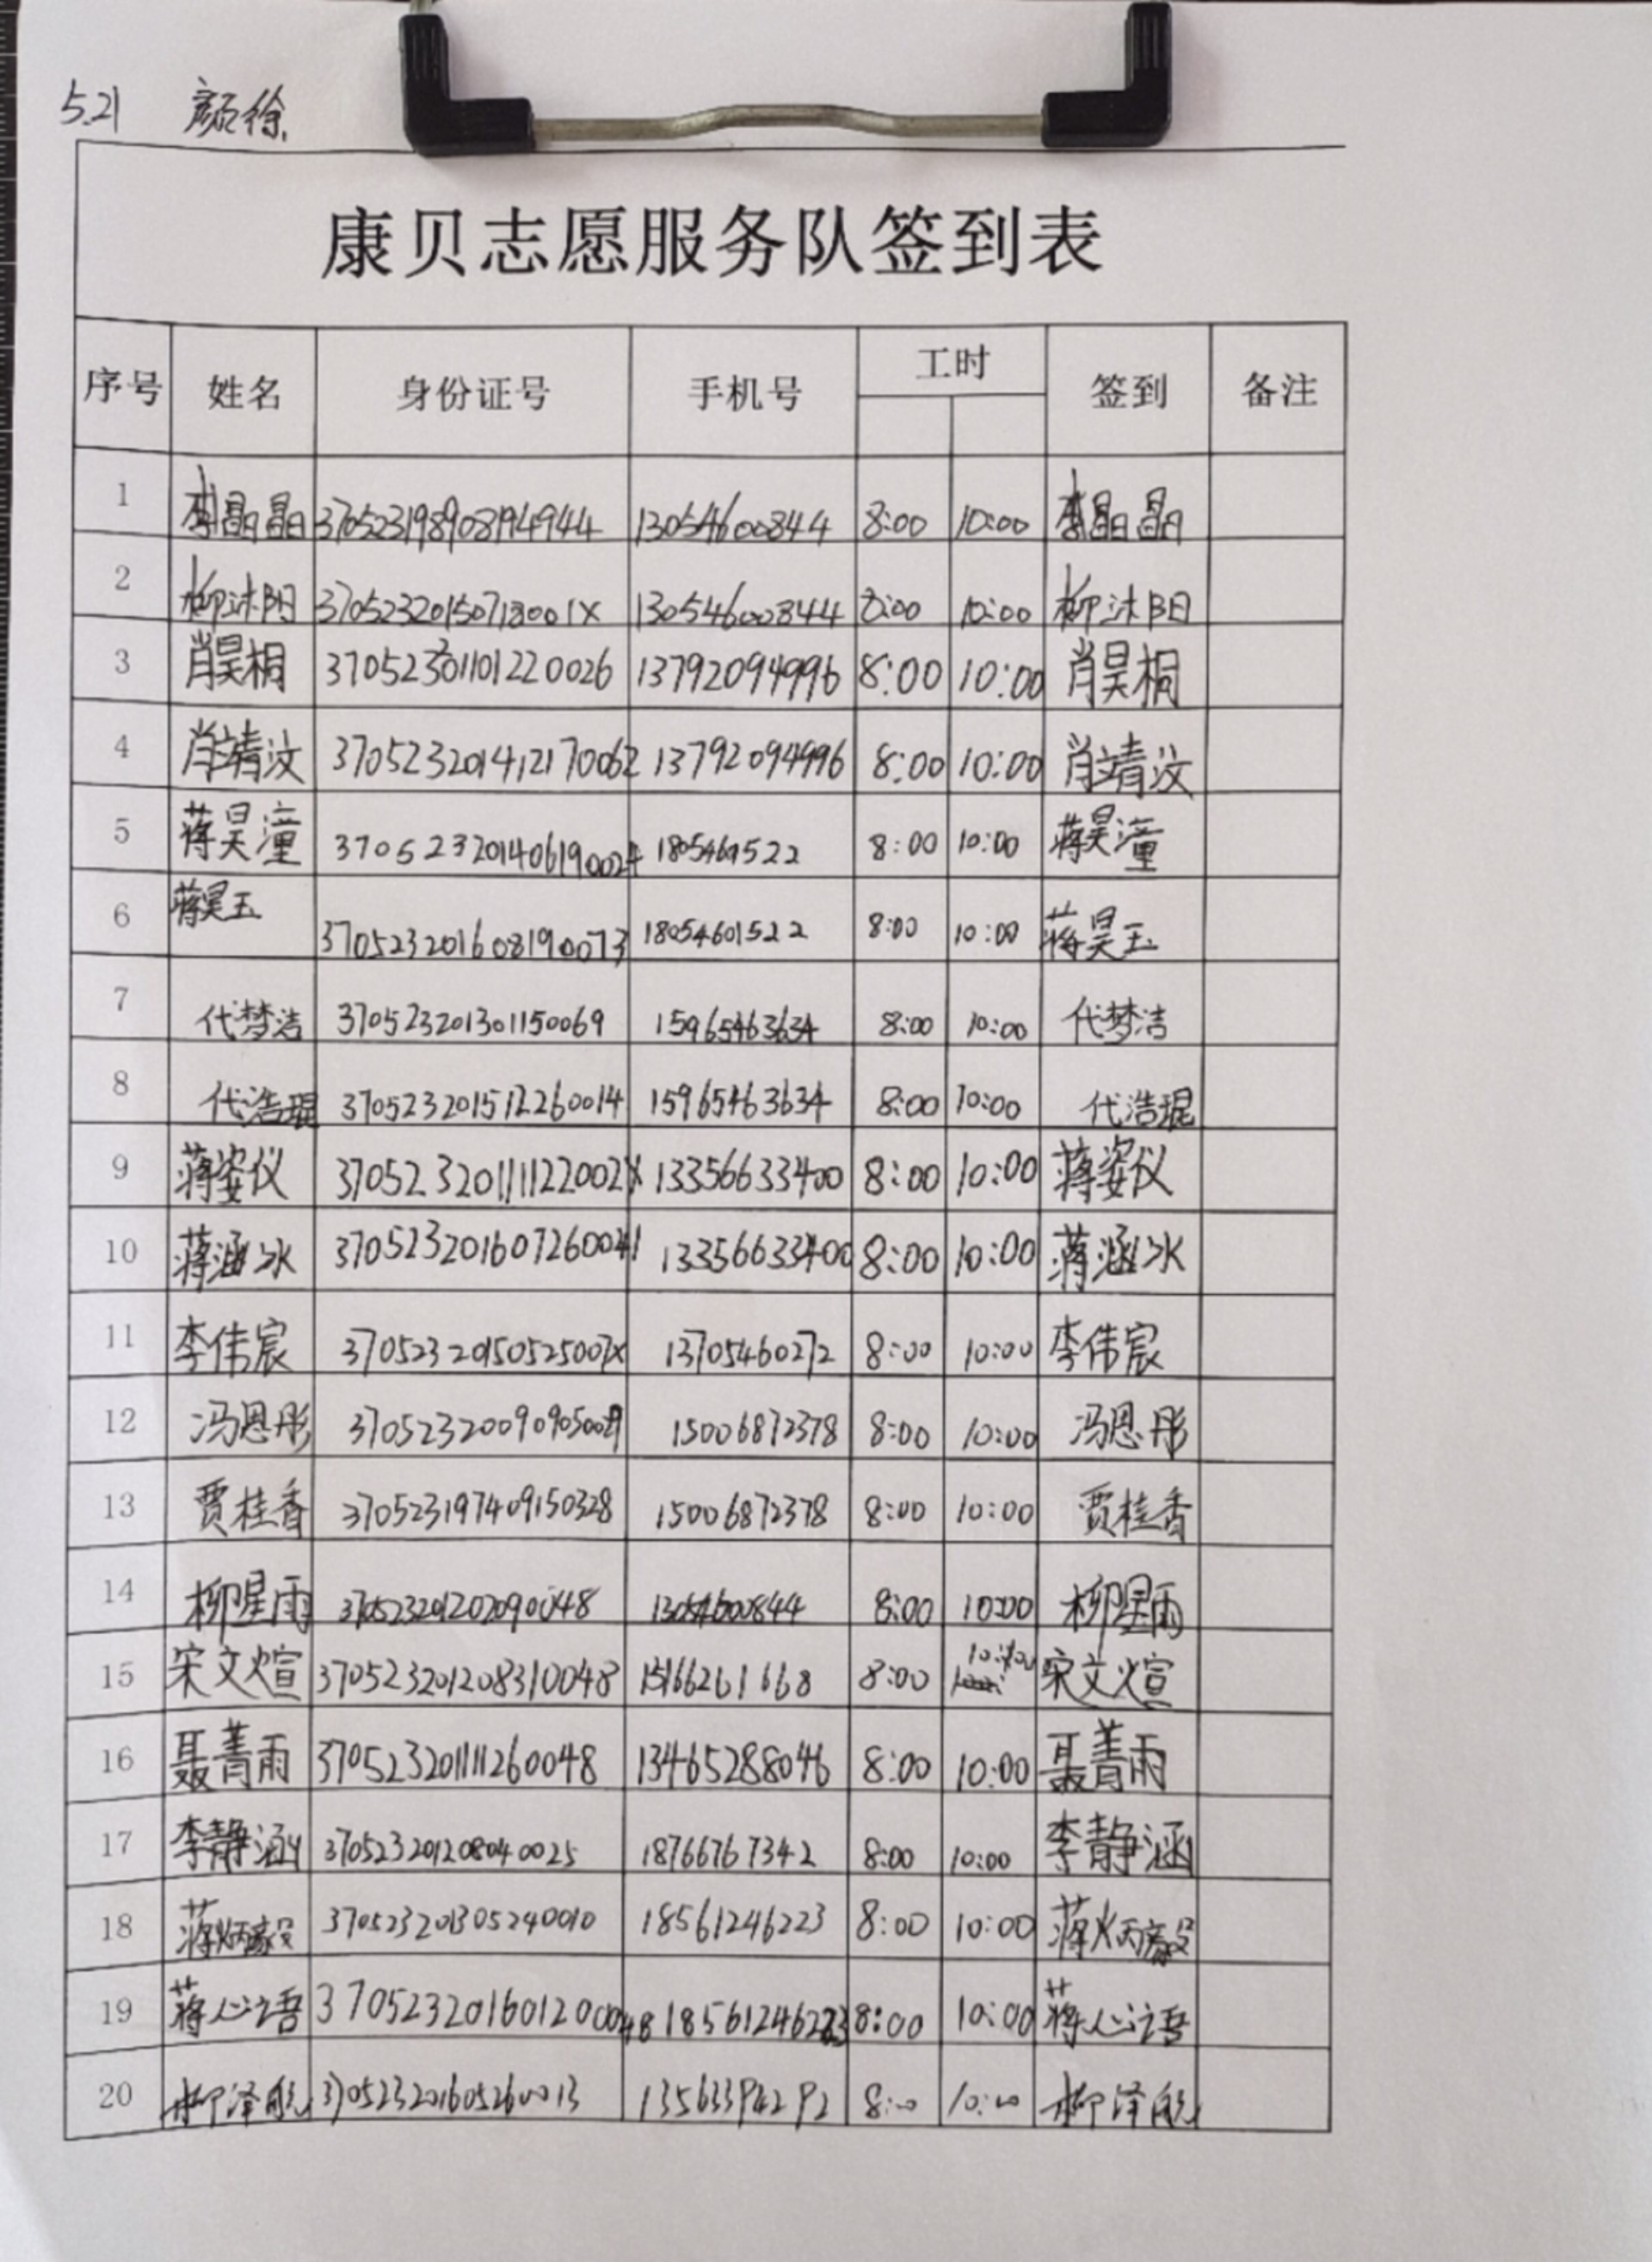 5.21 颜徐
康贝志愿服务队签到表
序号 姓名 身份证号 手机号 工时 签到 备注
1 李晶晶 370523198908194944 13054600844 8:00 10:00 李晶晶
2 柳沐阳 13054600844 8:00 10:00 柳沐阳
3 肖昊桐 370523201101220026 13792094996 8:00 10:00 肖昊桐
4 肖靖汶 370523201412170062 13792094996 8:00 10:00 肖靖汶
5 蒋昊潼 370523201406190024 8:00 10:00 蒋昊潼
6 蒋昊玉 370523201608190073 18054601522 8:00 10:00 蒋昊玉
7 代梦洁 370523201301150069 15965463634 8:00 10:00 代梦洁
8 代浩琨 370523201512260014 15965463634 8:00 10:00 代浩琨
9 蒋姿仪 37052320111122002X 13356633400 8:00 10:00 蒋姿仪
10 蒋涵冰 370523201607260041 13356633400 8:00 10:00 蒋涵冰
11 李伟宸 37052320150525007X 13705460272 8:00 10:00 李伟宸
12 冯恩彤 15006872378 8:00 10:00 冯恩彤
13 贾桂香 370523197409150328 15006872378 8:00 10:00 贾桂香
14 柳星雨 370523201202090048 13054600844 8:00 10:00 柳星雨
15 宋文煊 370523201208310048 15166261668 8:00 10:00 宋文煊
16 聂菁雨 370523201111260048 13465288046 8:00 10:00 聂菁雨
17 李静涵 370523201208040025 18766767342 8:00 10:00 李静涵
18 370523201305240010 18561246223 8:00 10:00
19 蒋心语 370523201601200048 18561246223 8:00 10:00 蒋心语
20 柳泽航 370523201605260013 13563394292 8:00 10:00 柳泽航